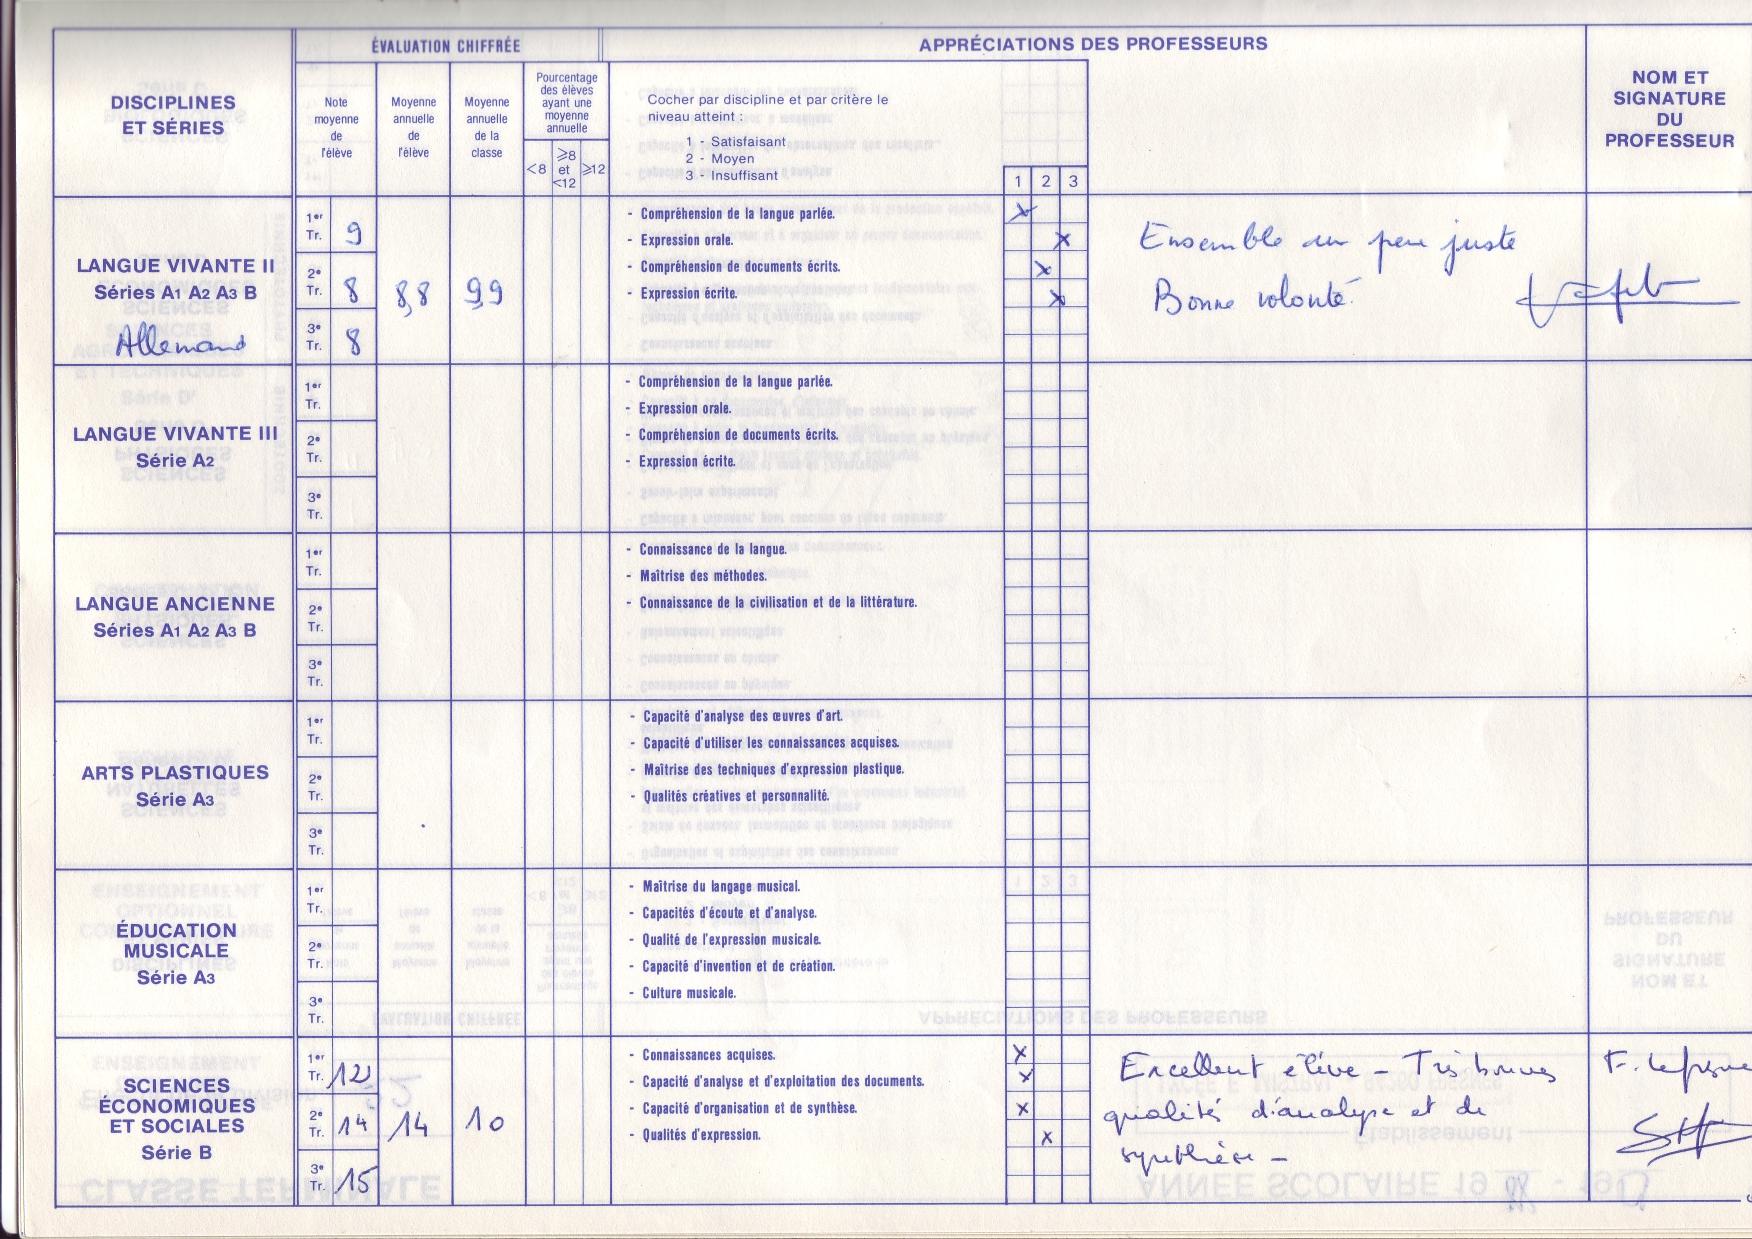 ÉVALUATION CHIFFRÉE
APPRÉCIATIONS DES PROFESSEURS
DISCIPLINES
ET SÉRIES
Note
moyenne
de
l'élève
Moyenne
annuelle
de
l'élève
Moyenne
annuelle
de la
classe
Pourcentage
des élèves
ayant une
moyenne
annuelle
<8
≥8
et
<12
≥12
Cocher par discipline et par critère le
niveau atteint :
1 - Satisfaisant
2 - Moyen
3 - Insuffisant
1 2 3
NOM ET
SIGNATURE
DU
PROFESSEUR
LANGUE VIVANTE II
Séries A1 A2 A3 B
Allemand
1er Tr. 9
2e Tr. 8
3e Tr. 8
8,8
9,9
- Compréhension de la langue parlée. x
- Expression orale. x
- Compréhension de documents écrits. x
- Expression écrite. x
Ensemble un peu juste
Bonne volonté.
LANGUE VIVANTE III
Série A2
1er Tr.
2e Tr.
3e Tr.
- Compréhension de la langue parlée.
- Expression orale.
- Compréhension de documents écrits.
- Expression écrite.
LANGUE ANCIENNE
Séries A1 A2 A3 B
1er Tr.
2e Tr.
3e Tr.
- Connaissance de la langue.
- Maîtrise des méthodes.
- Connaissance de la civilisation et de la littérature.
ARTS PLASTIQUES
Série A3
1er Tr.
2e Tr.
3e Tr.
- Capacité d'analyse des œuvres d'art.
- Capacité d'utiliser les connaissances acquises.
- Maîtrise des techniques d'expression plastique.
- Qualités créatives et personnalité.
ÉDUCATION
MUSICALE
Série A3
1er Tr.
2e Tr.
3e Tr.
- Maîtrise du langage musical.
- Capacités d'écoute et d'analyse.
- Qualité de l'expression musicale.
- Capacité d'invention et de création.
- Culture musicale.
SCIENCES
ÉCONOMIQUES
ET SOCIALES
Série B
1er Tr. 12
2e Tr. 14
3e Tr. 15
14
10
- Connaissances acquises. x
- Capacité d'analyse et d'exploitation des documents. x
- Capacité d'organisation et de synthèse. x
- Qualités d'expression. x
Excellent élève - Très bonnes
qualité d'analyse et de
synthèse -